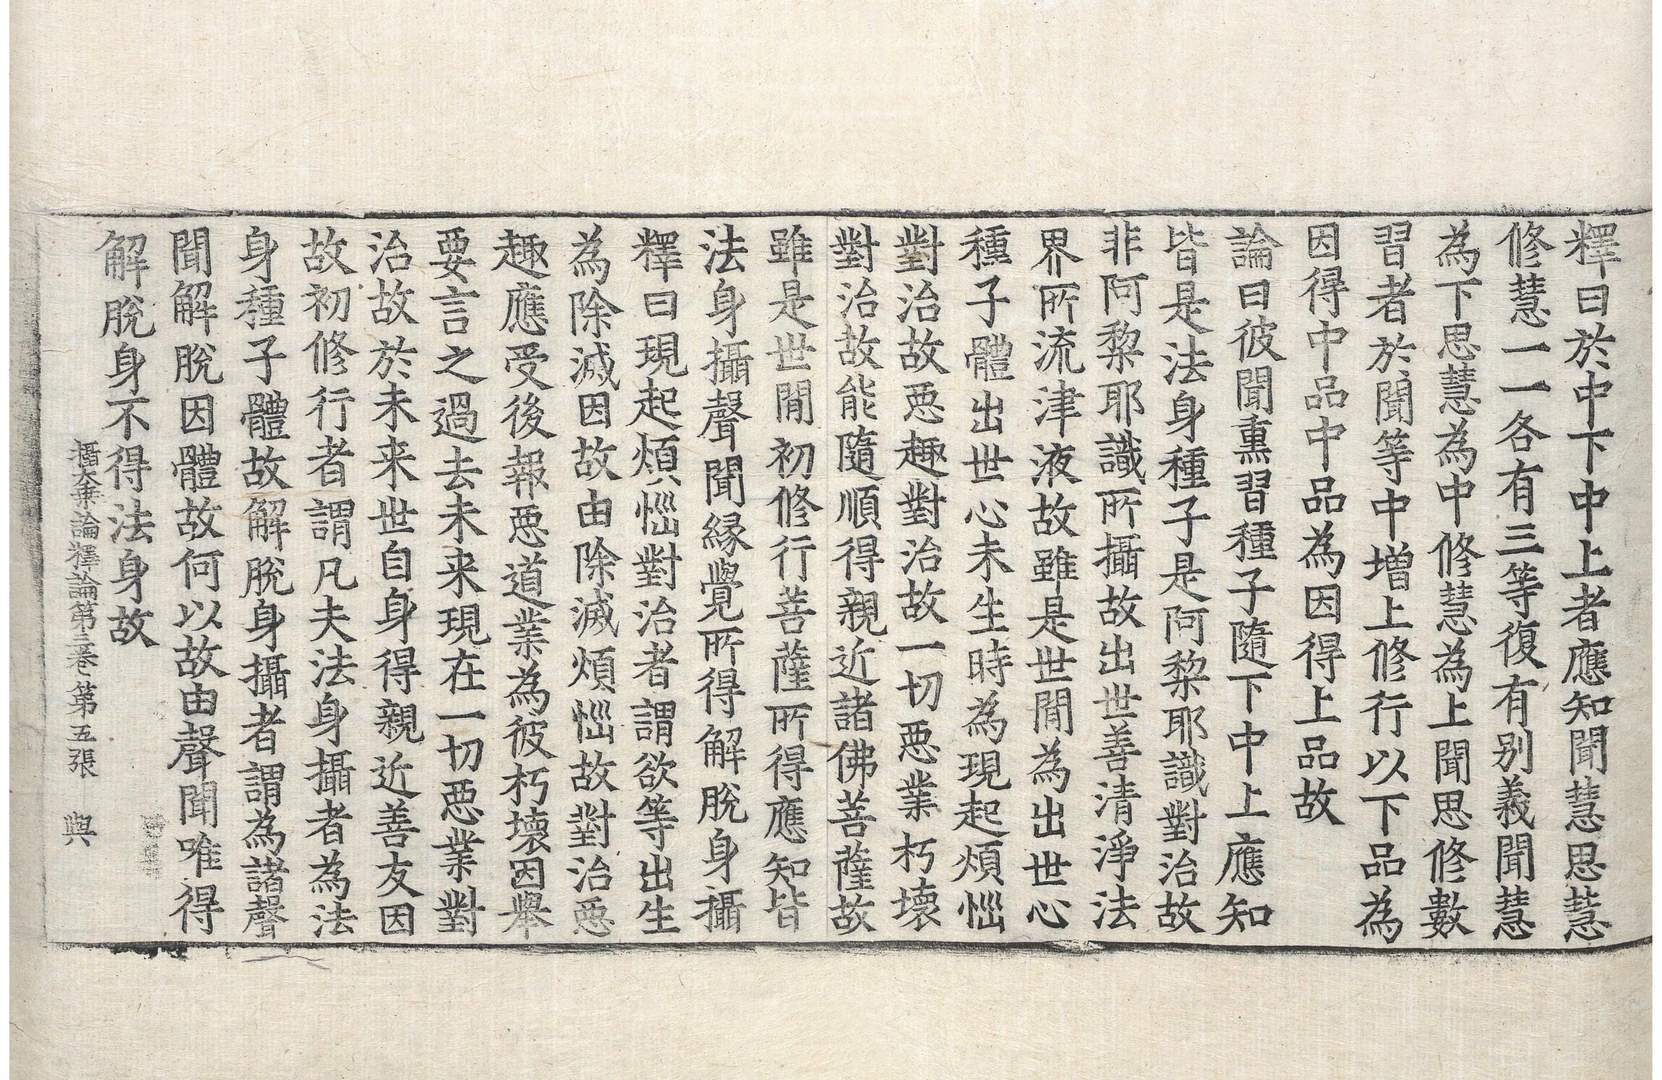 釋曰於中下中上者應知聞慧思慧
修慧一一各有三等復有别義聞慧
為下思慧為中修慧為上聞思修數
習者於聞等中增上修行以下品為
因得中品中品為因得上品故
論曰彼聞熏習種子隨下中上應知
皆是法身種子是阿黎耶識對治故
非阿黎耶識所攝故出世善清淨法
界所流津液故雖是世間為出世心
種子體出世心未生時為現起煩惱
對治故惡趣對治故一切惡業朽壞
對治故能隨順得親近諸佛菩薩故
雖是世間初修行菩薩所得應知皆
法身攝聲聞緣覺所得解脫身攝
釋曰現起煩惱對治者謂欲等出生
為除滅因故由除滅煩惱故對治惡
趣應受後報惡道業為彼朽壞因舉
要言之過去未来現在一切惡業對
治故於未来世自身得親近善友因
故初修行者謂凡夫法身攝者為法
身種子體故解脫身攝者謂為諸聲
聞解脫因體故何以故由聲聞唯得
解脫身不得法身故
攝大乘論釋論第三卷 第五張 與